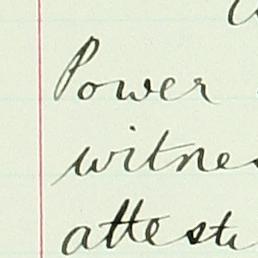 Power
witnes
attest